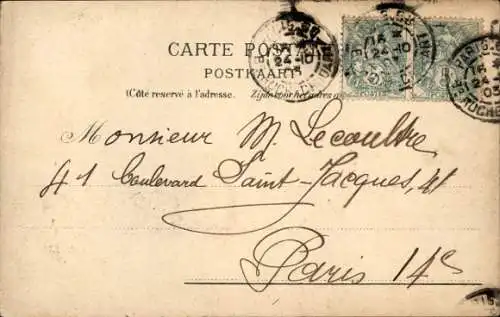 CARTE POSTALE
POSTKAART
(Côté réservé à l'adresse. Zijde voor het adres
Monsieur M. Lecoultre
41 Boulevard Saint-Jacques, 41
Paris 14e